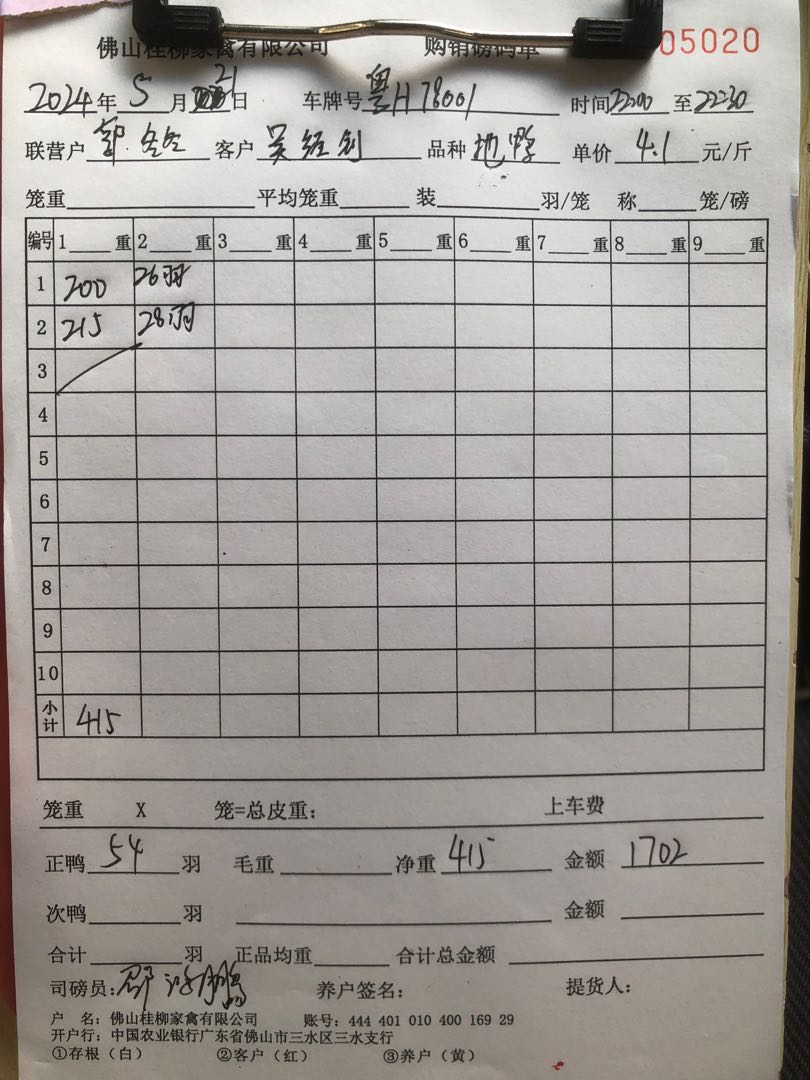 佛山桂柳家禽有限公司 购销磅码单 05020
2024年 5 月 21 日 车牌号 粤H78001 时间 22:00 至 22:30
联营户 郭冬冬 客户 吴经创 品种 地鸭 单价 4.1 元/斤
笼重 平均笼重 装 羽/笼 称 笼/磅
编号 1 重 2 重 3 重 4 重 5 重 6 重 7 重 8 重 9 重
1 200 26羽
2 215 28羽
3
4
5
6
7
8
9
10
小计 415
笼重 X 笼=总皮重: 上车费
正鸭 54 羽 毛重 净重 415 金额 1702
次鸭 羽 金额
合计 羽 正品均重 合计总金额
司磅员: 养户签名: 提货人:
户 名: 佛山桂柳家禽有限公司 账号: 444 401 010 400 169 29
开户行: 中国农业银行广东省佛山市三水区三水支行
①存根(白) ②客户(红) ③养户(黄)